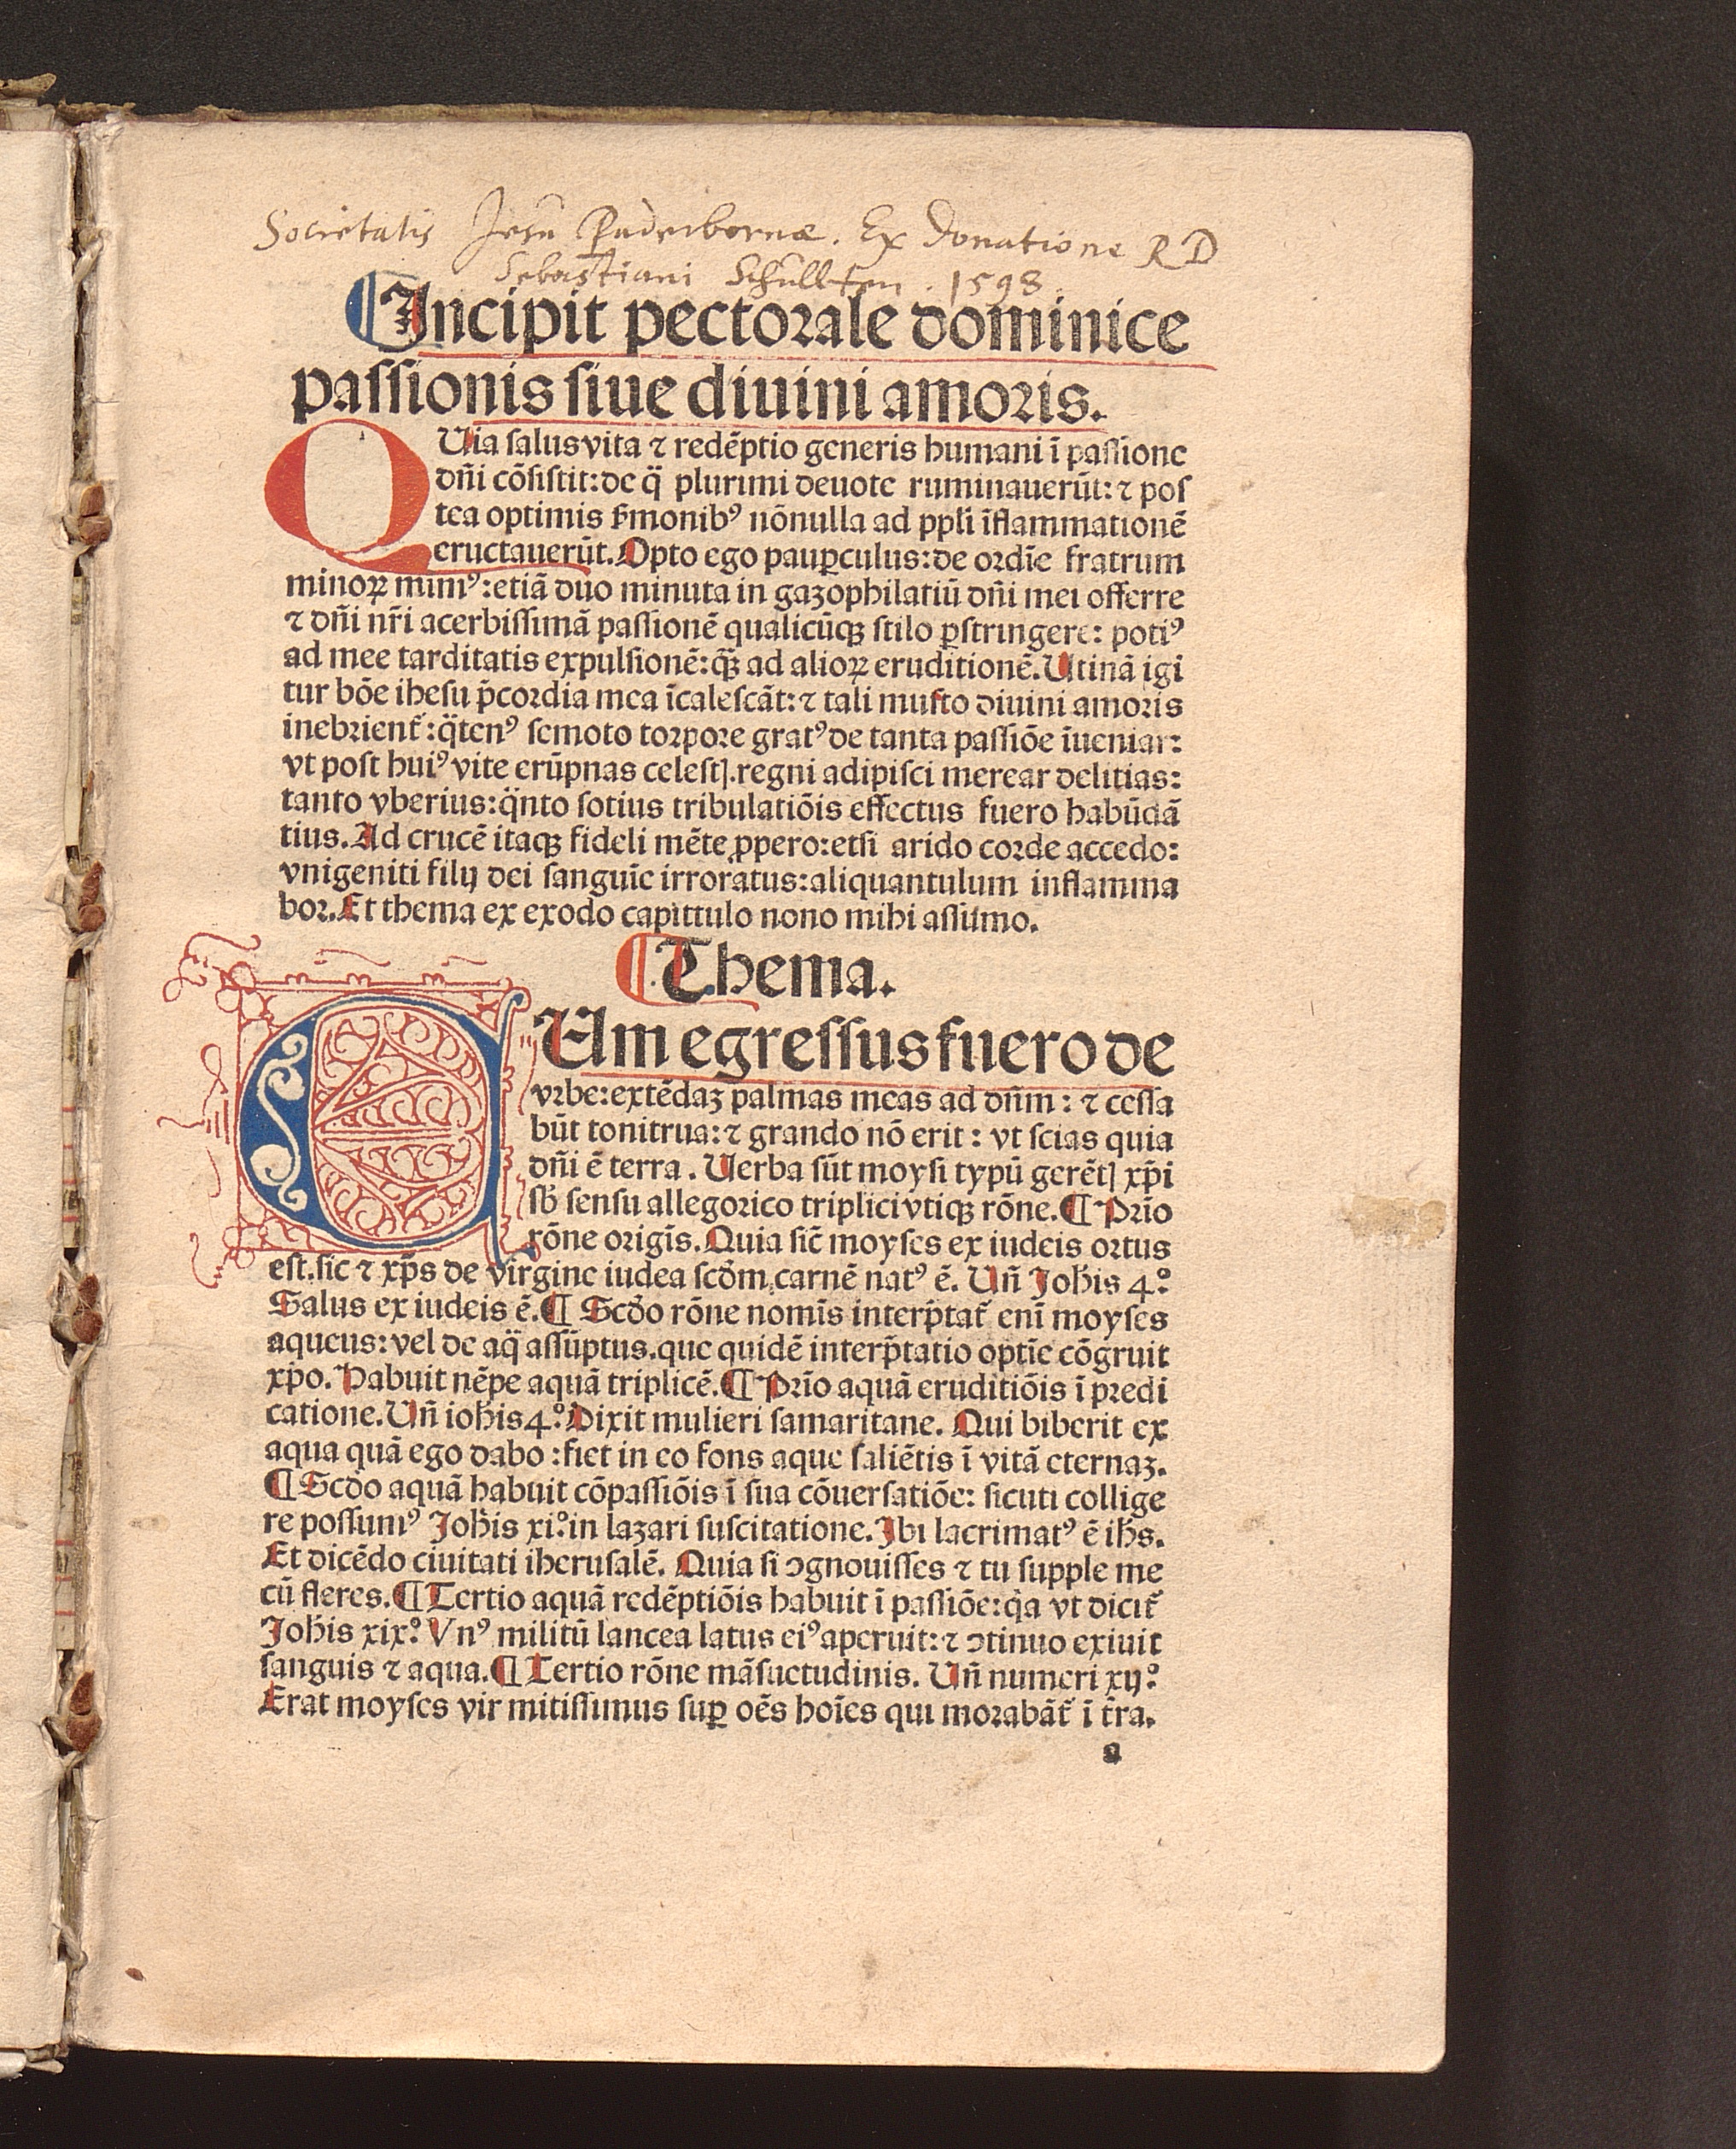 Societatis Jesu Paderbornæ. Ex Donatione R D
Sebastiani Schullten . 1598.
¶Incipit pectorale dominice
paſſionis ſiue diuini amoris.
QUia ſalus vita ⁊ redēptio generis humani ī paſſione
dn̄i cōſiſtit: de q̈ plurimi deuote ruminauerūt: ⁊ poſ
tea optimis ẜmonibꝰ nōnulla ad ppl̄i īflammationē
eructauerūt. Opto ego pauꝑculus: de ordīe fratrum
minoꝝ mimꝰ: etiā duo minuta in gazophilatiū dn̄i mei offerre
⁊ dn̄i nr̄i acerbiſſimā paſſionē qualicūqꝫ ſtilo ꝑſtringere: potiꝰ
ad mee tarditatis expulſionē: q̈ꝫ ad alioꝝ eruditionē. Utinā igi
tur bōe iheſu p̄cordia mea īcaleſcāt: ⁊ tali muſto diuini amoris
inebrient᷑: q̈tenꝰ ſemoto torpore gratꝰ de tanta paſſiōe īueniar:
vt poſt huiꝰ vite erūpnas celeſtꝭ. regni adipiſci merear delitias:
tanto vberius: q̈nto ſotius tribulatiōis effectus fuero habūdā
tius. Ad crucē itaqꝫ fideli mēte ꝓpero: etſi arido corde accedo:
vnigeniti filij dei ſanguīe irroratus: aliquantulum inflamma
bor. Et thema ex exodo capittulo nono mihi aſſumo.
¶Thema.
CUm egreſſus fuero de
vrbe: extēdaꝫ palmas meas ad dn̄m: ⁊ ceſſa
būt tonitrua: ⁊ grando nō erit: vt ſcias quia
dn̄i ē terra. Uerba ſūt moyſi typū gerētꝭ xp̄i
ſb̄ ſenſu allegorico triplici vtiqꝫ rōne. ¶ Prīo
rōne origīs. Quia ſic̄ moyſes ex iudeis ortus
eſt. ſic ⁊ xp̄s de virgine iudea ſcd̄m carnē natꝰ ē. Un̄ Joh̄is 4.º
Salus ex iudeis ē. ¶ Scd̄o rōne nomīs interp̄tat᷑ enī moyſes
aqueus: vel de aq̈ aſſūptus. que quidē interp̄tatio optīe cōgruit
xp̄o. Habuit nēpe aquā triplicē. ¶ Prīo aquā eruditiōis ī predi
catione. Un̄ ioh̄is 4.º Dixit mulieri ſamaritane. Qui biberit ex
aqua quā ego dabo: fiet in eo fons aque ſaliētis ī vitā eternaꝫ.
¶ Scd̄o aquā habuit cōpaſſiōis ī ſua cōuerſatiōe: ſicuti collige
re poſſumꝰ Joh̄is xi.º in lazari ſuſcitatione. Ibi lacrimatꝰ ē ih̄s.
Et dicēdo ciuitati iheruſalē. Quia ſi ꝯgnouiſſes ⁊ tu ſupple me
cū fleres. ¶ Tertio aquā redēptiōis habuit ī paſſiōe: q̇a vt dicit᷑
Joh̄is xix.º Vnꝰ militū lancea latus eiꝰ aperuit: ⁊ ꝯtinuo exiuit
ſanguis ⁊ aqua. ¶ Tertio rōne māſuetudinis. Un̄ numeri xij.º
Erat moyſes vir mitiſſimus ſuꝑ oēs hoīes qui morabāt᷑ ī t̄ra.
a